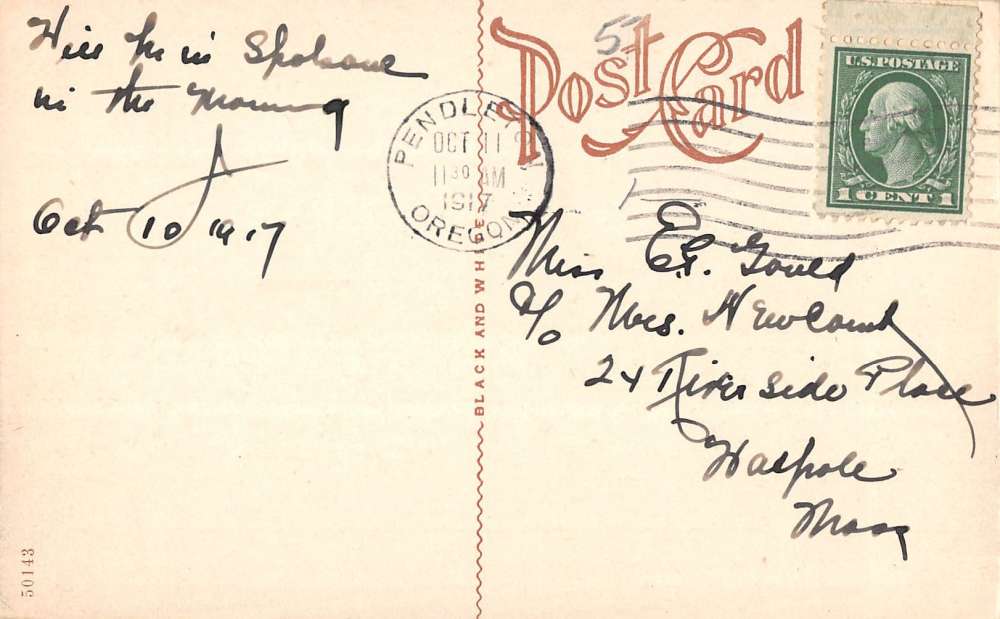 Will be in Spokane
in the morning
J
Oct 10 1917
50143
BLACK AND WHITE
Post Card
5
PENDLETON
OCT 11
11 30 AM
1917
OREGON
U.S. POSTAGE
1 CENT 1
Miss E.G. Gould
c/o Mrs. Newcomb
24 Riverside Place
Walpole
Mass